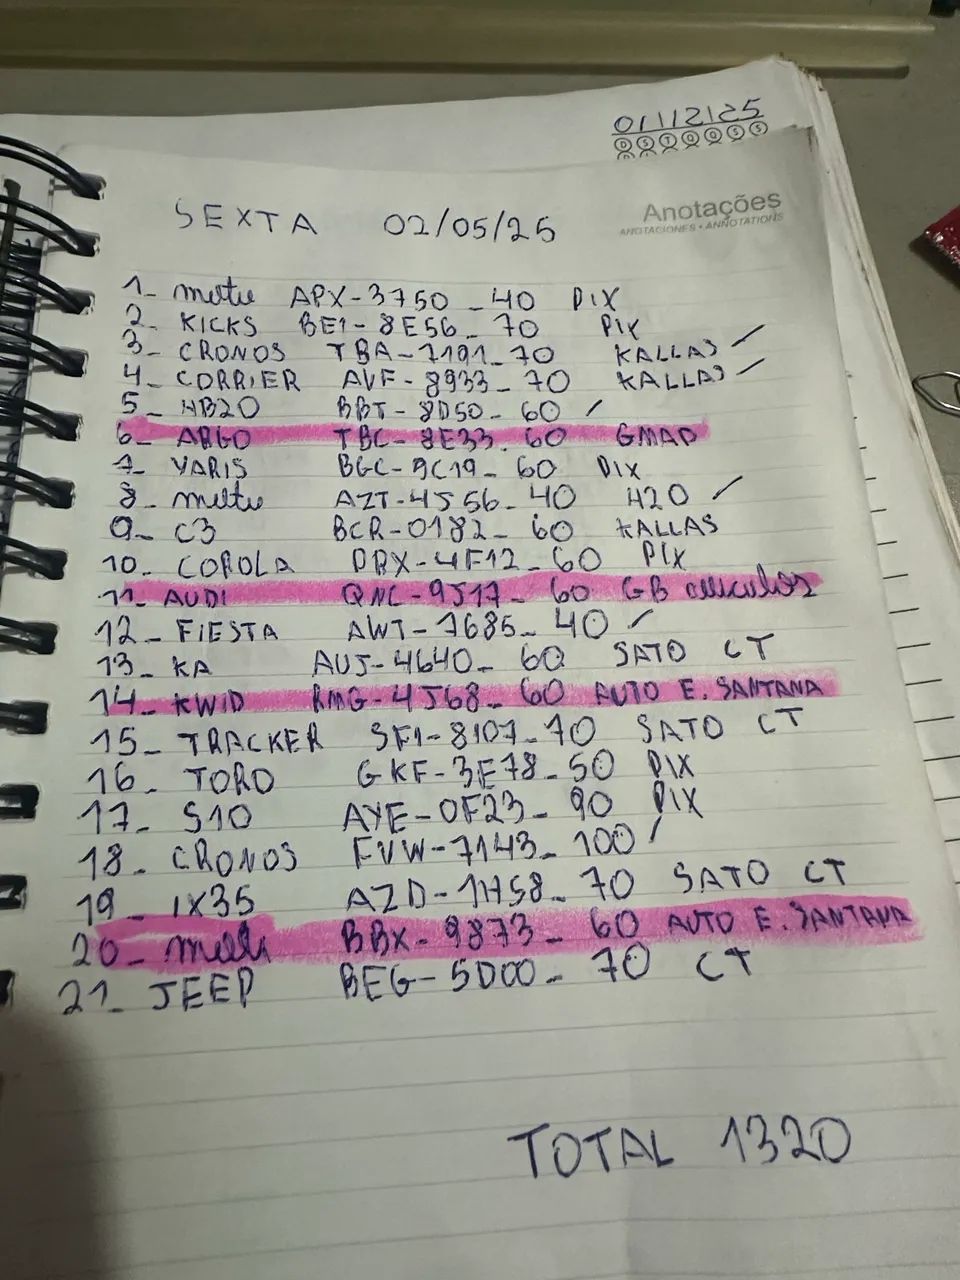 01/12/25
D S T Q Q S S
Anotações
ANOTACIONES • ANNOTATIONS
SEXTA 02/05/25
1- moto APX-3750 - 40 PIX
2- KICKS BEI-8E56 - 70 PIX
3- CRONOS TBA-7191 - 70 KALLAS ✓
4- CORRIER AVF-8933 - 70 KALLAS ✓
5- HB20 BBT-8D50 - 60 ✓
6- ARGO TBC-8E33 - 60 GMAD
7- YARIS BGC-9C19 - 60 PIX
8- moto AZT-4J56 - 40 H20 ✓
9- C3 BCR-0182 - 60 KALLAS
10- COROLA PBX-4F12 - 60 PIX
11- AUDI QNC-9J17 - 60 GB
12- FIESTA AWT-7685 - 40 ✓
13- KA AUJ-4640 - 60 SATO CT
14- KWID RMG-4J68 - 60 AUTO E. SANTANA
15- TRACKER SFI-8107 - 70 SATO CT
16- TORO GKF-3E78 - 50 PIX
17- S10 AYE-0F23 - 90 PIX
18- CRONOS FVW-7143 - 100 ✓
19- IX35 AZD-1H58 - 70 SATO CT
20- BBX-9873 - 60 AUTO E. SANTANA
21- JEEP BEG-5D00 - 70 CT
TOTAL 1320